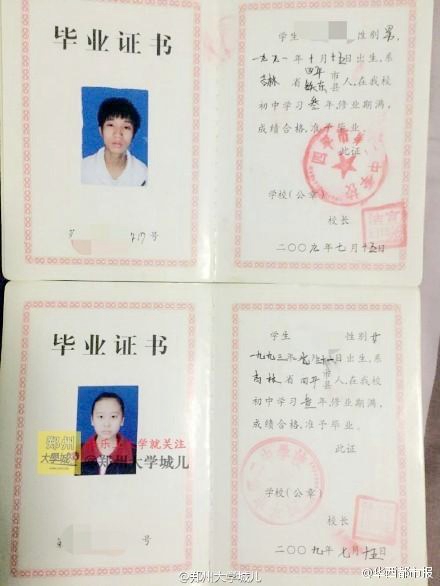 毕业证书
学生 性别男,
一九九一年十月十五日出生,系
吉林省四平市
县人,在我校
初中学习叁年,修业期满,
成绩合格,准予毕业。
此证
学校(公章)
校长
二〇〇九年七月十五日
号
毕业证书
学生 性别女
日出生,系
吉林省四平市
县人,在我校
初中学习叁年,修业期满,
成绩合格,准予毕业。
此证
学校(公章)
校长
二〇〇九年七月十五日
第 号
郑州
大學城
就关注
@郑州大学城儿
@郑州大学城儿
@华西都市报